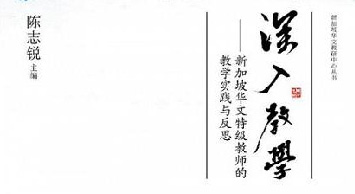 新加坡华文教研中心丛书
深入教學
——新加坡华文特级教师的
教学实践与反思
陈志锐 主编